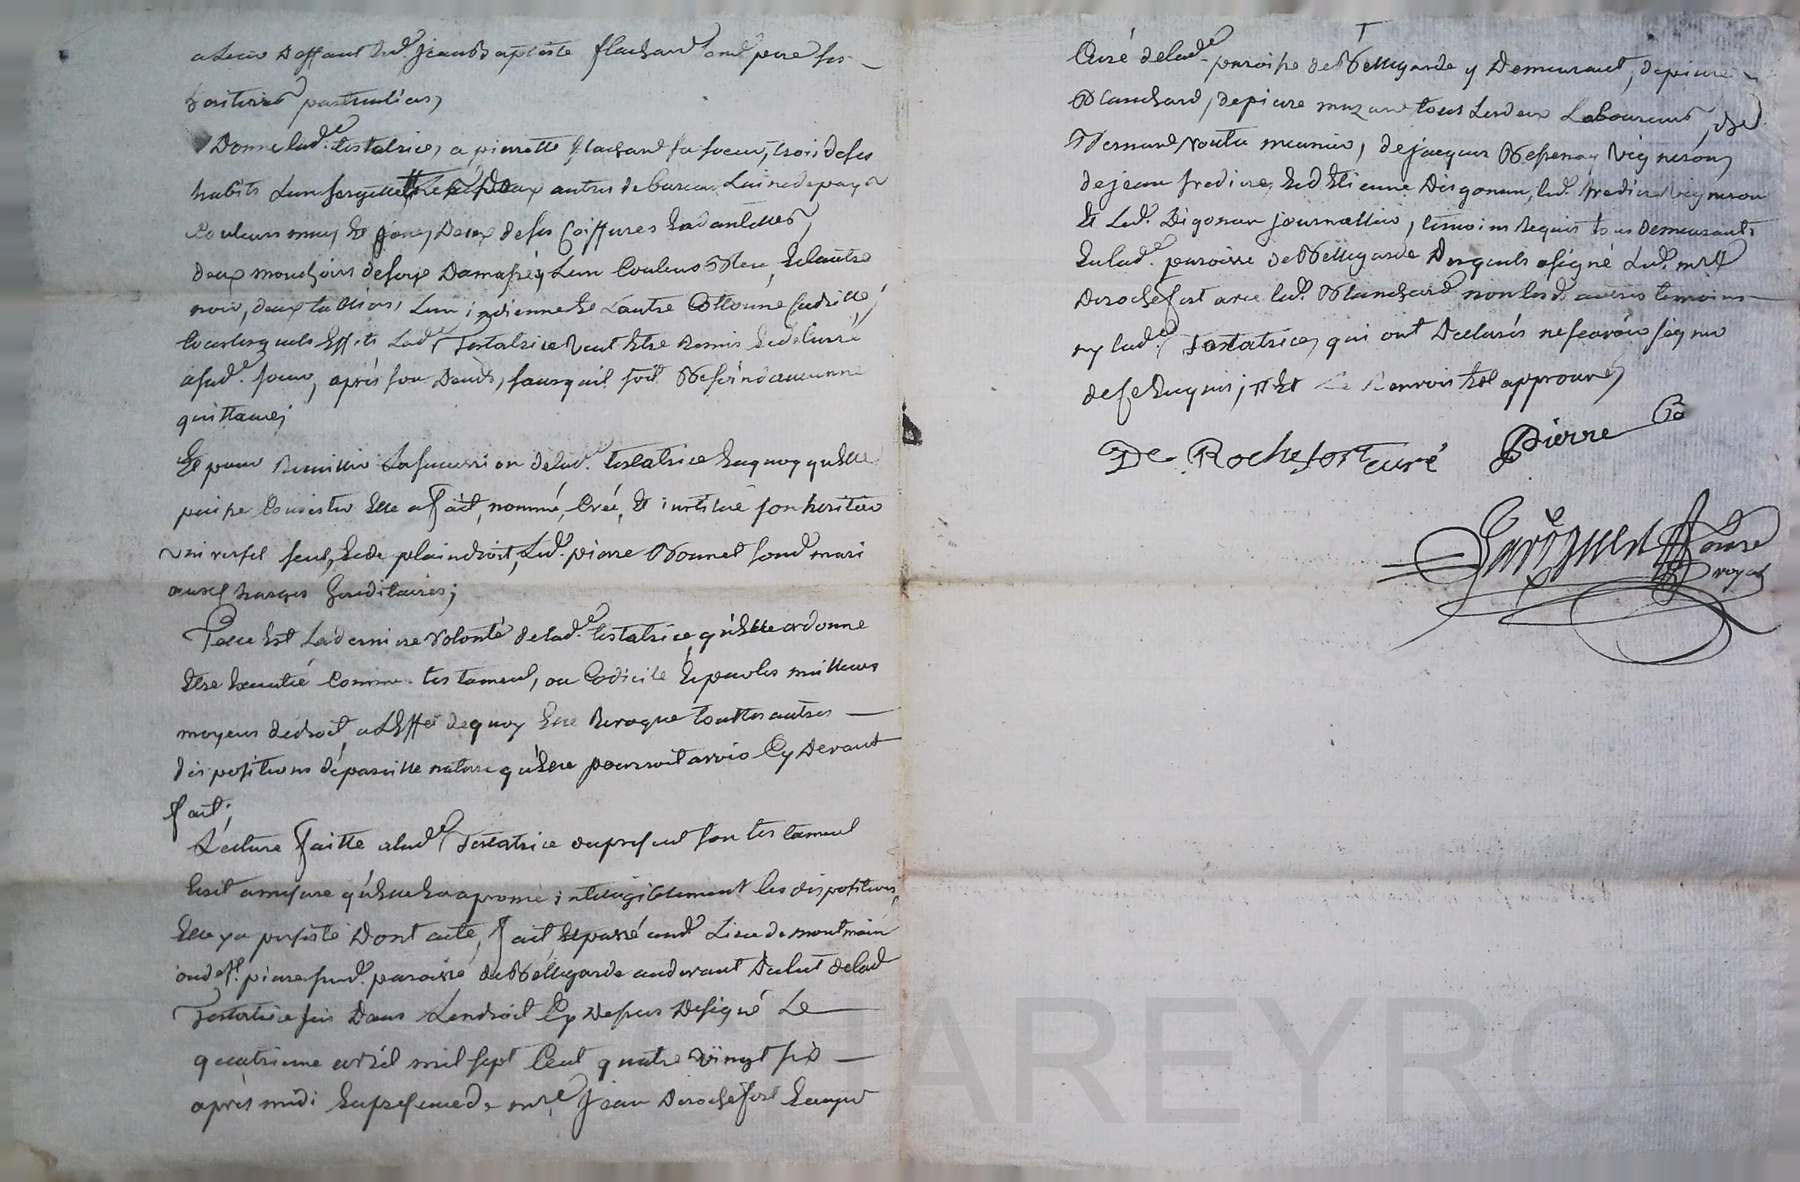 a leur deffaut led. Jean Baptiste flachard sond. pere ses
heritiers particuliers,
Donne lad.e testatrice, a pierrette flachard sa soeur, trois de ses
habits l'un sergette et deux autres de bureau laine de pays
Couleurs et deux de ses Coiffures Esdantelles,
deux mouchoirs de soye Damassés, L'un Couleur Bleu, Et l'autre
noir, deux tabliers, L'un indienne Et L'autre Cottonne Cadrillé,
tous lesquels Effets Lad.e Testatrice veut Etre Remis Et delivré
a sad. soeur, après son Deceds, sans qu'il soit Besoin d'aucunne
quittance;
Et pour Recueillir La succession de lad. testatrice En quoy qu'Elle
puisse Consister Elle a fait, nommé, Créé, Et institué son heritier
universel seul, Et de plein droit, Led. pierre Bonnet sond. mari
aux charges hereditaires;
Telle Est La derniere volonté de lad.e testatrice, qu'Elle ordonne
Etre Executé Comme testament, ou Codicile Et par les meilleurs
moyens de droit, a L'Effet de quoy Elle Revoque touttes autres
dispositions de pareille nature qu'Elle pourroit avoir Cy Devant
fait;
Lecture faitte a lad.e Testatrice du present son testament
Ecrit a mesure qu'Elle En a prononcé intelligiblement les dispositions
Elle y a persisté Dont acte, fait Et passé aud. Lieu de montmain
oud. pierre sud. paroisse de Bellegarde au devant du lit de lad.
Testatrice sis Dans L'endroit Cy Dessus Designé Le
quatrieme avril mil sept Cent quatre vingt six
après midi En presence de m.re Jean Derochefort Ecuyer
Curé de lad.e paroisse de Bellegarde y Demeurant, de pierre
Blanchard, de pierre mazard tous Les deux Laboureurs, de
Bernard meunier, de jacques Bessenay vigneron,
de jean fredière, Et d'Etienne Digonan, led. fredière vigneron
Et Led. Digonan journallier, temoins Requis tous demeurants
En lad.e paroisse de Bellegarde Desquels a signé Led. m.re
Derochefort avec led. Blanchard non lesd. autres temoins
ny lad.e Testatrice, qui ont Declarés ne sçavoir signer
de ce Enquis, Et Le Renvoi Est approuvé,
De Rochefort curé Pierre
royal
CHAREYRON